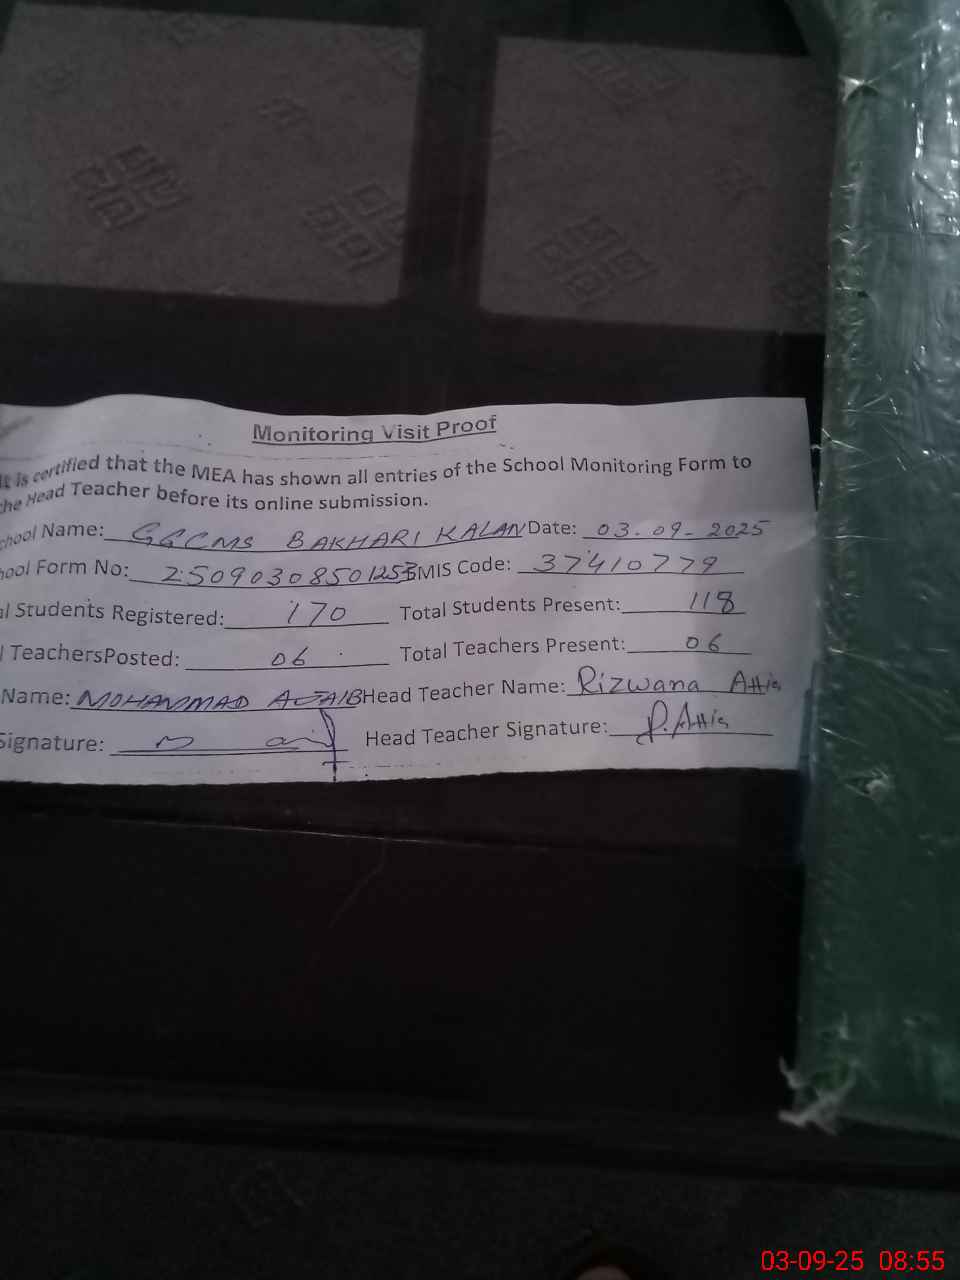 Monitoring Visit Proof
It is certified that the MEA has shown all entries of the School Monitoring Form to
the Head Teacher before its online submission.
chool Name: GGCMS BAKHARI KALAN Date: 03-09-2025
hool Form No: 2509030850125 MIS Code: 37410779
al Students Registered: 170 Total Students Present: 118
l TeachersPosted: 06 Total Teachers Present: 06
Name: MOHAMMAD AJAIB Head Teacher Name: Rizwana Attia
Signature: Head Teacher Signature: R. Attia
03-09-25 08:55